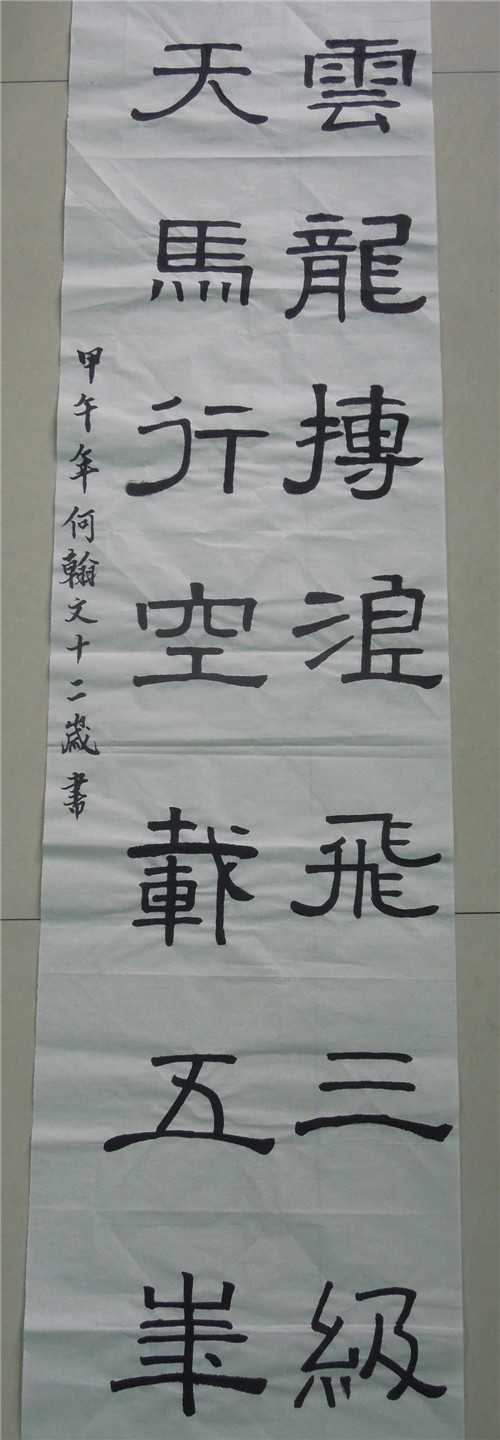 雲龍搏浪飛三級
天馬行空載五
甲午年何翰文十二歲書